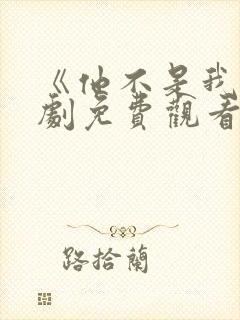 《他不是我
劇免費觀看
路拾蘭